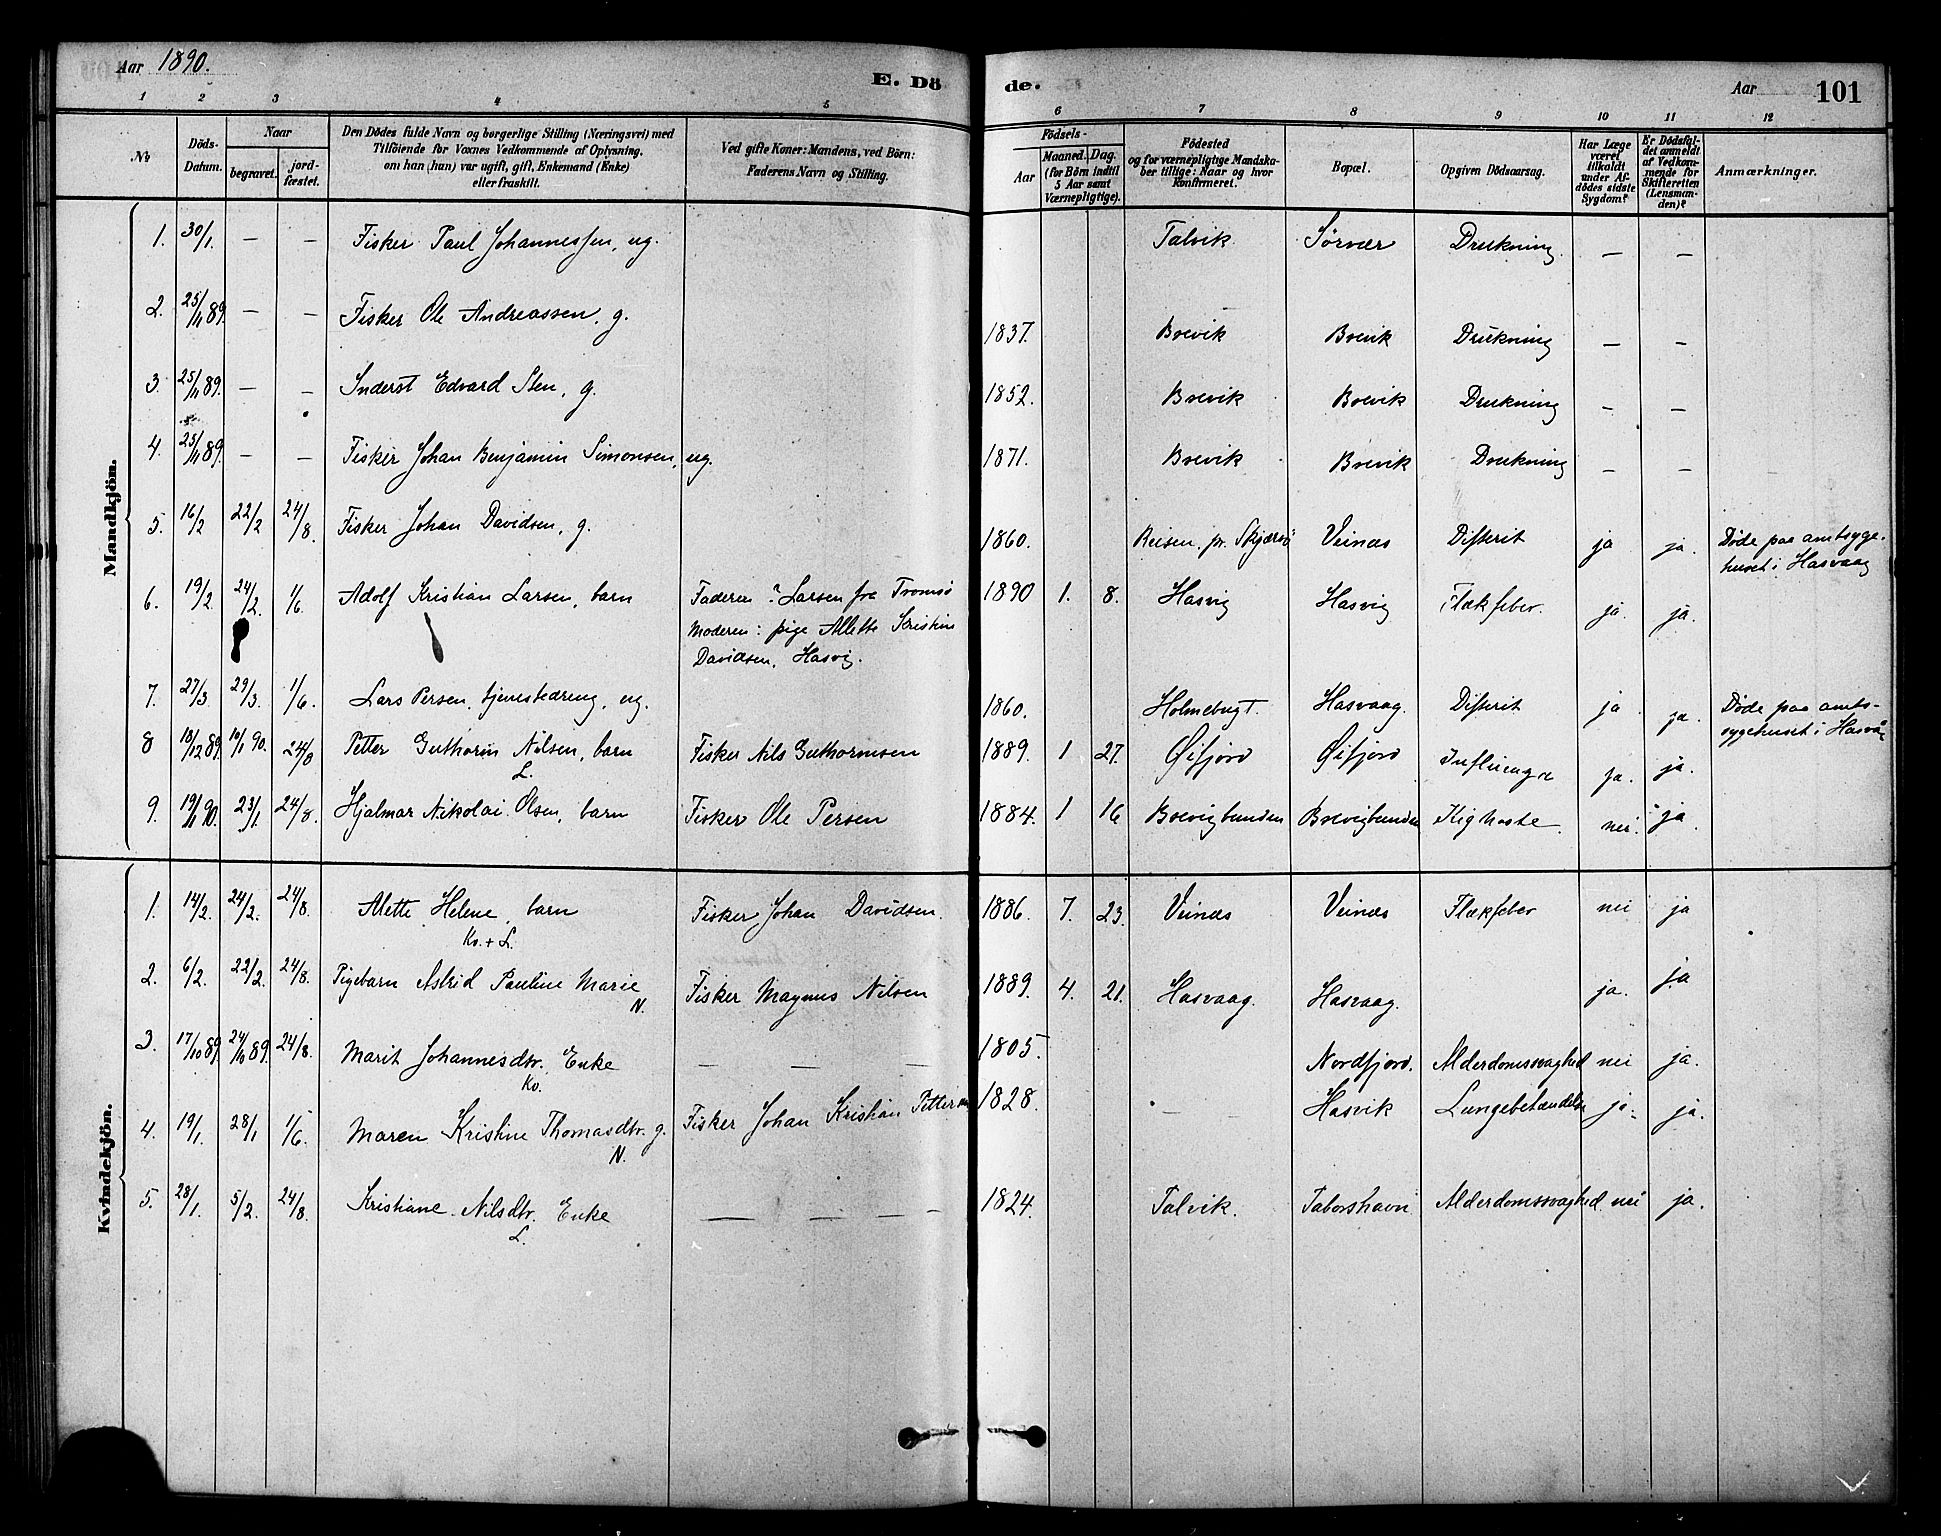 Aar 1890.
E. Dö
de.
Aar
101
1 2 3 4 5 6 7 8 9 10 11 12
No
Döds-Datum.
Naar
begravet.
jordfæstet.
Den Dödes fulde Navn og borgerlige Stilling (Næringsvei) med
Tilföiende for Voxnes Vedkommende af Oplysning,
om han (hun) var ugift, gift, Enkemand (Enke)
eller fraskilt.
Ved gifte Koner: Mandens, ved Börn:
Faderens Navn og Stilling.
Födsels-
Aar
Maaned. Dag.
(for Börn indtil
5 Aar samt
Værnepligtige).
Födested
og for værnepligtige Mandskaber tillige: Naar og hvor
Konfirmeret.
Bopæl.
Opgiven Dödsaarsag.
Har Læge
været
tilkaldt
under Afdödes sidste
Sygdom?
Er Dödsfaldet anmeldt
af Vedkommende for
Skifteretten
(Lensmanden)?
Anmærkninger.
Mandkjön.
1. 30/1. — — Fisker Paul Johannessen, ug. Talvik Sørvær Drukning — —
2. 25/11 89. — — Fisker Ole Andreassen, g. 1837. Brevik Brevik Drukning — —
3. 25/11 89. — — Inderst Edvard Sten, g. 1852. Brevik Brevik Drukning — —
4. 25/11 89. — — Fisker Johan Benjamin Simonsen, ug. 1871. Brevik Brevik Drukning — —
5. 16/2 22/2 24/8. Fisker Johan Davidsen, g. 1860. Reisen, pr. Skjærvø Veines Difterit ja ja. Døde paa amtsygehuset i Hasvaag
6. 19/2. 24/2. 1/6. Adolf Kristian Larsen, barn Faderen ? Larsen fra Tromsø
Moderen: pige Alette Kristine
Davidsen, Hasvig. 1890 1. 8. Hasvig Hasvig Flækfeber. ja. ja.
7. 27/3. 29/3. 1/6. Lars Persen, tjenestedreng, ug. 1860. Holmebugt. Hasvaag. Difterit ja ja. Døde paa amtssygehuset i Hasvåg
8 18/12 89. 10/1 90. 24/8 Petter Guthorm Nilsen, barn Fisker Nils Guthormsen 1889. 1 27. Øifjord Øifjord Influenza ja. ja.
L.
9. 19/1 90. 23/1. 24/8. Hjalmar Nikolai Olsen, barn Fisker Ole Persen 1884. 1 16 Brevigbunden Brevigbunden Kighoste. nei. ja.
Kvindekjön.
1. 14/2. 24/2. 24/8. Alette Helene, barn Fisker Johan Davidsen. 1886. 7. 23. Veines Veines Flækfeber nei ja
Kv. + L.
2. 6/2. 22/2. 24/8. Pigebarn Astrid Pauline Marie Fisker Magnus Nilsen 1889. 4. 21. Hasvaag. Hasvaag. ja. ja
N.
3. 17/10 89. 24/10 89. 24/8. Marit Johannesdtr. Enke — — — 1805. Nordfjord. Alderdomssvaghed nei ja.
Kv.
4. 19/1. 28/1 1/6. Maren Kristine Thomasdtr. g. Fisker Johan Kristian Petter 1828. — — Hasvik Lungebetændelse ja. ja.
N.
5. 28/1. 5/2. 24/8. Kristiane Nilsdtr. Enke — — — — 1824. Talvik. Taborshavn Alderdomssvaghed nei ja.
L.